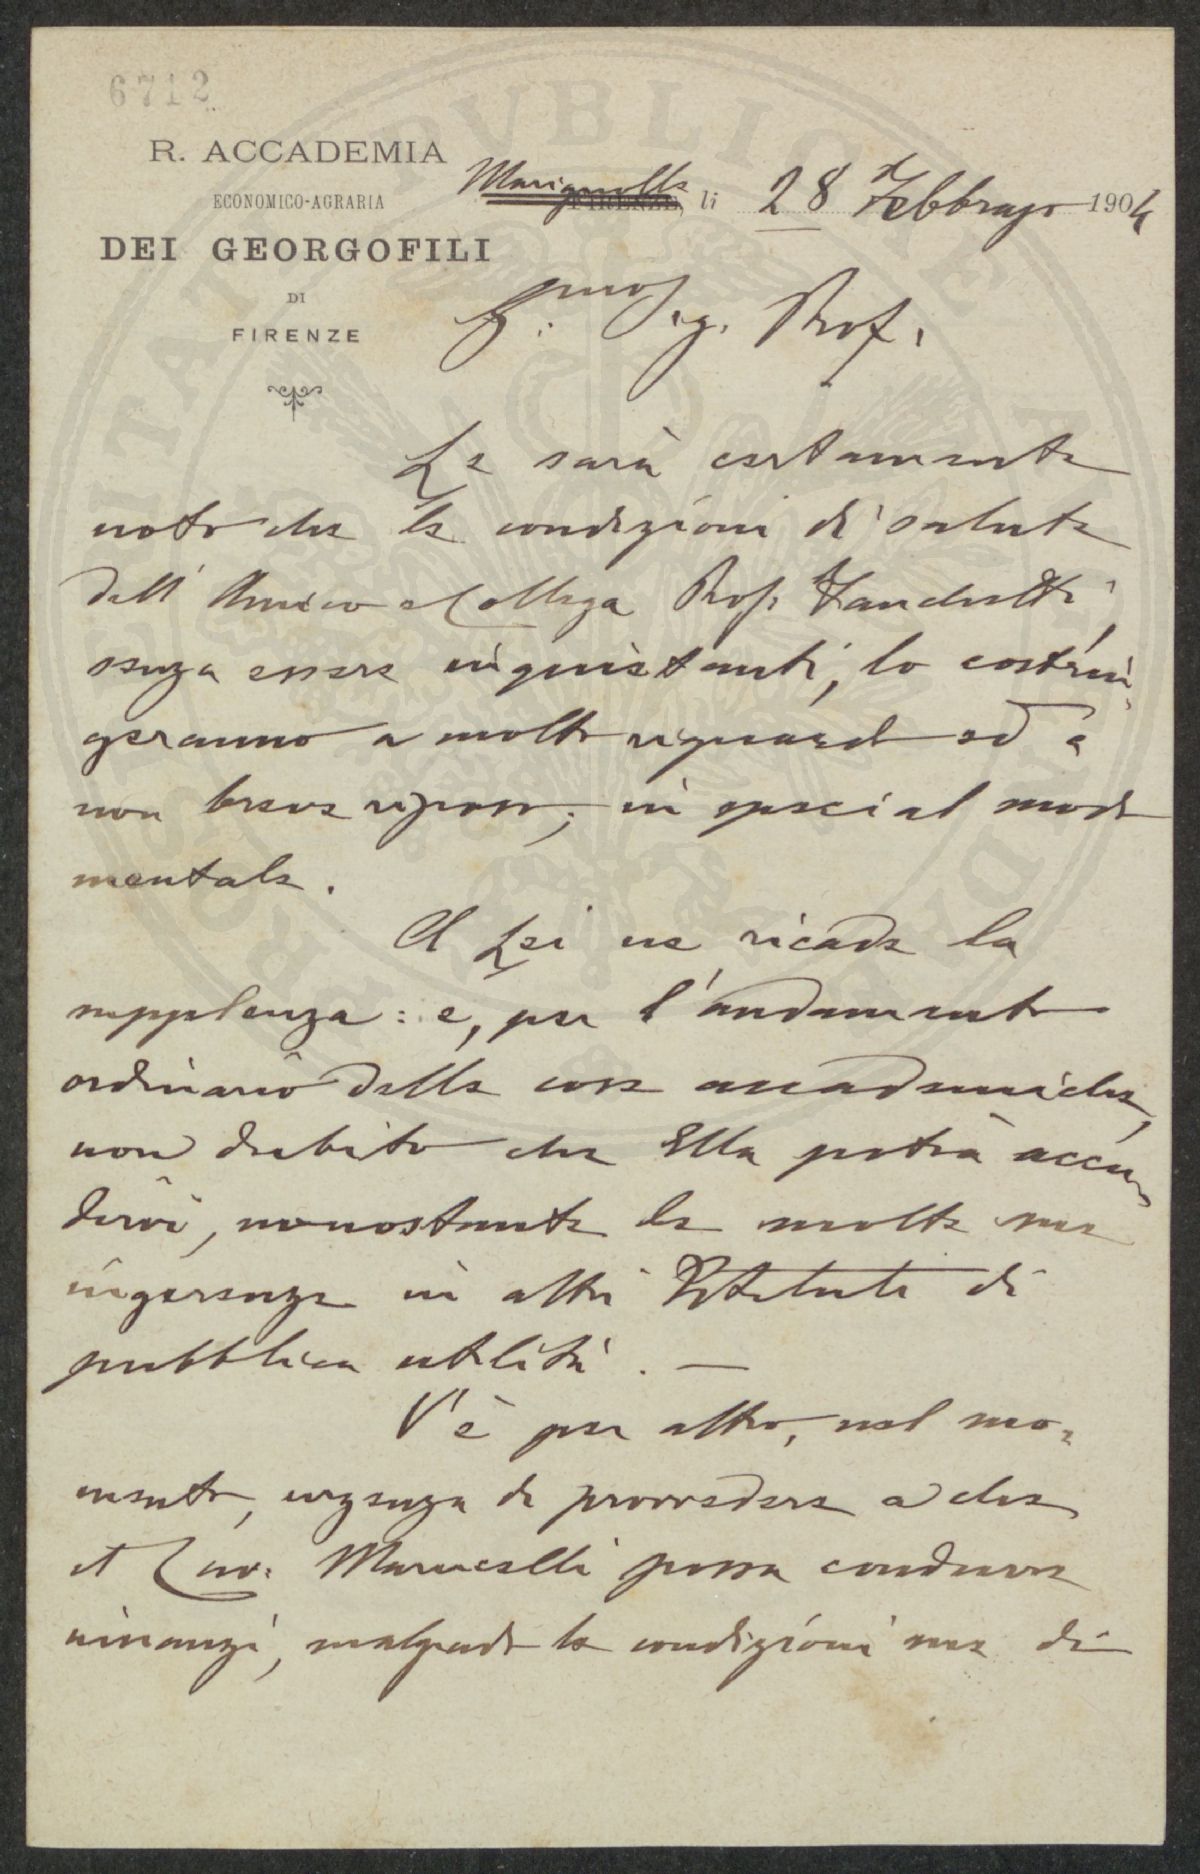 6712
R. ACCADEMIA
ECONOMICO-AGRARIA
DEI GEORGOFILI
DI
FIRENZE
Marignolle FIRENZE, li 28 Febbrajo 1904
Sig. Prof.
Le sarà certamente
noto che le condizioni di salute
dell'Amico e Collega Prof.
senza essere inquietanti, lo costrin-
geranno a molto riguardo ed a
non breve riposo, in special modo
mentale.
A Lei ne ricade la
supplenza: e, per l'andamento
ordinario delle cose accademiche,
non dubito che Ella potrà accu-
dirvi, nonostante le molte sue
ingerenze in altri Istituti di
pubblica utilità. —
V'è per altro, nel mo-
mento, urgenza di provvedere a che
il Cav. Marucelli possa condurre
innanzi, malgrado le condizioni sue di
PVBLICAE
PROSPERITATI